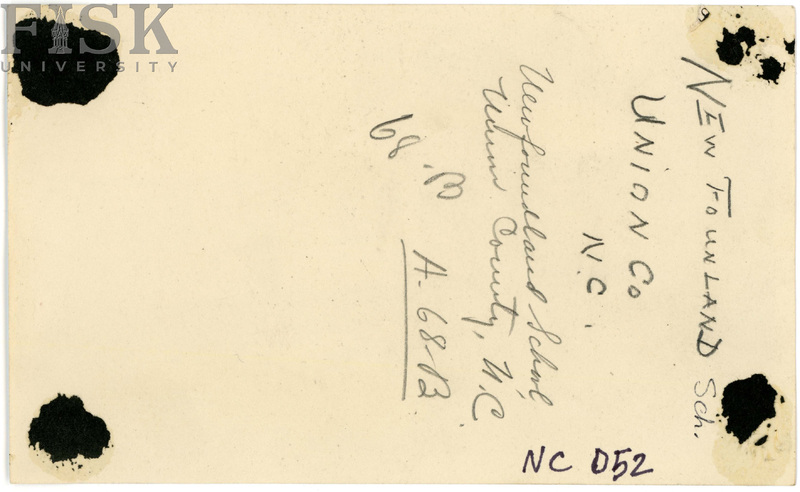 FISK
UNIVERSITY
9
NEW FOUNLAND Sch.
UNION CO
N.C.
Newfoundland School,
Union County, N.C.
68-B
A-68-B
NC D52